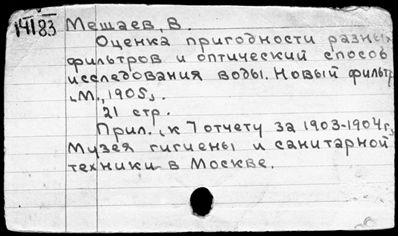 14183 Мешаев, В.
Оценка пригодности разных
фильтров и оптический способ
исследования воды. Новый фильтр
М., 1905.
21 стр.
Прил. к 7 отчету за 1903-1904 г.
Музея гигиены и санитарной
техники в Москве.